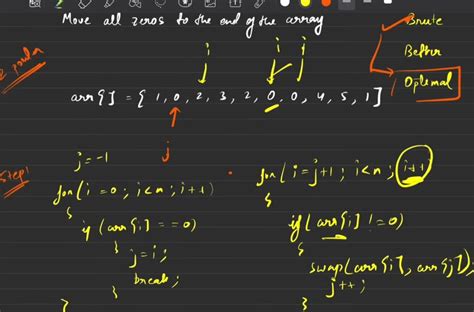 Move all zeros to the end of the array
Brute
Better
Optimal
2 pointer
i i i
arr[] = { 1, 0, 2, 3, 2, 0, 0, 4, 5, 1 ]
j
Step1
j = -1
for (i = 0; i < n; i++)
{
if (arr[i] == 0)
{
j = i;
break;
}
}
for (i = j+1; i < n; i++)
{
if (arr[i] != 0)
{
swap(arr[i], arr[j]);
j++;
}